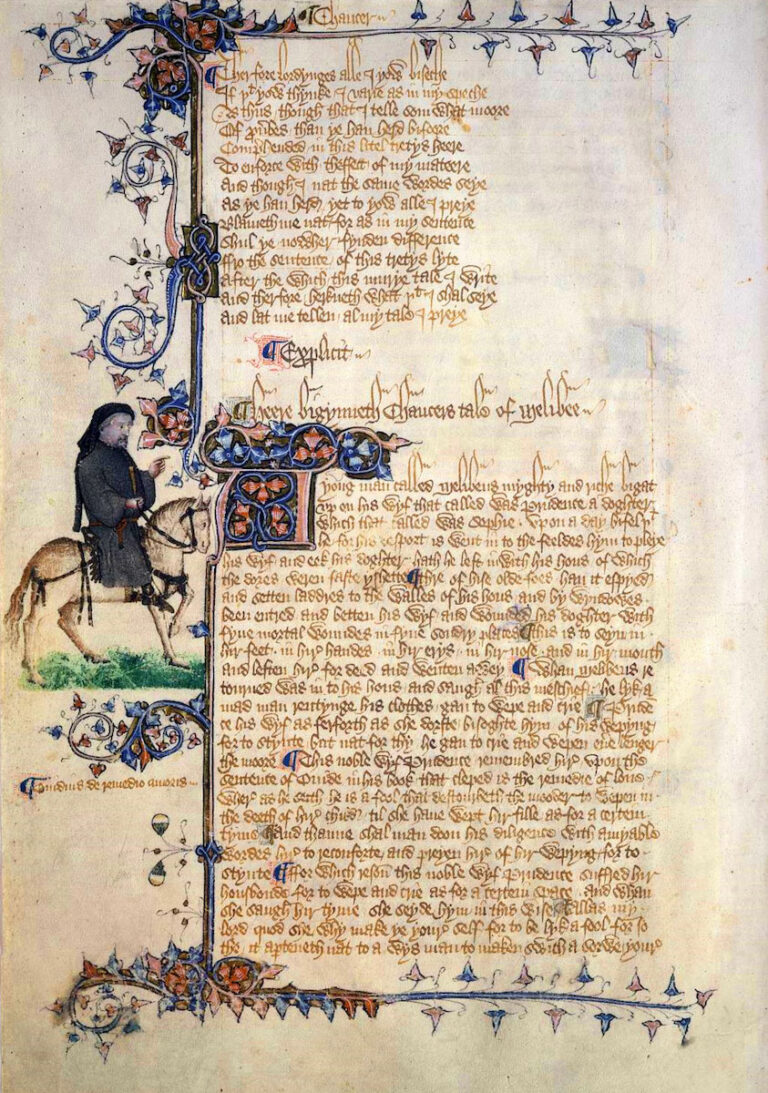 Chaucer
Therfore lordynges alle I yow biseche
If þt yow thynke I varie as in my speche
As thus though that I telle som what moore
Of puerbes than ye han herd bifoore
Comprehended in this litel tretys heere
To enforce with theffect of my mateere
And though I nat the same wordes seye
As ye han herd yet to yow alle I preye
Blameth me nat for as in my sentence
Shul ye nowher fynden difference
Fro the sentence of this tretys lyte
After the which this murye tale I write
And therfore herkneth what þt I shal seye
And lat me tellen al my tale I preye
Explicit
Heere bigynneth Chaucers tale of Melibee
A yong man called Melibeus myghty and riche bigat
vp on his wyf that called was Prudence a doghter
which that called was Sophie . Vpon a day bifel þt
he for his desport is went in to the feeldes hym to pleye
his wyf and eek his doghter hath he left in with his hous of which
the dores weren faste yshette Thre of hise olde foes han it espyed
and setten laddres to the walles of his hous and by wyndowes
been entred and betten his wyf and wounded his doghter with
fyue mortal woundes in fyue sondry places This is to seyn in
hir feet . in hir handes . in hir erys . in hir nose . and in hir mouth
and leften hir for deed and wenten awey Whan Melibeus re
tourned was in to his hous and saugh al this meschief . he lyk a
mad man rentynge his clothes gan to wepe and crie Prude
ce his wyf as ferforth as she dorste bisoghte hym of his wepyng
for to stynte but nat for thy he gan to crie and wepen eue lenger
the moore This noble wyf Prudence remembred hir vpon the
sentence of Ouide in his book that cleped is the remedie of loue
wher as he seith he is a fool that destourbeth the mooder to wepen in
the deeth of hir child til she haue wept hir fille as for a certein
tyme And thanne shal man doon his diligence with amyable
wordes hir to reconforte and preyen hir of hir wepyng for to
stynte For which reson this noble wyf Prudence suffred hir
housbonde for to wepe and crie as for a certein space . and whan
she saugh hir tyme she seyde hym in this wise Allas my
lord quod she why make ye your self for to be lyk a fool for so
the it aparteneth nat to a wys man to maken swich a sorwe your
Ouidius de remedio amoris